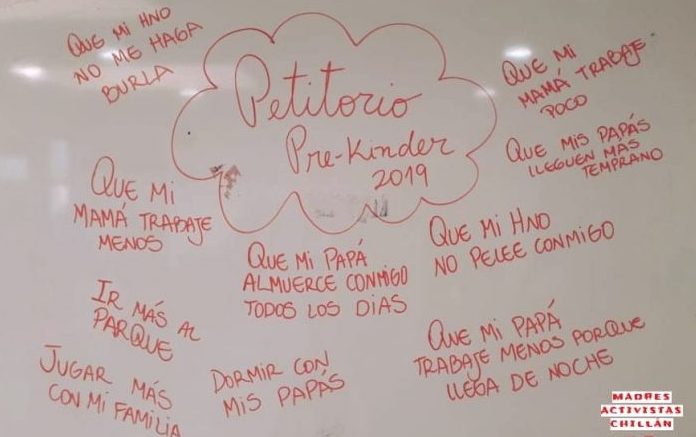 QUE MI HNO
NO ME HAGA
BURLA
Petitorio
Pre-Kinder
2019
QUE MI
MAMÁ TRABAJE
POCO
QUE MIS PAPÁS
LLEGUEN MAS
TEMPRANO
QUE MI
MAMÁ TRABAJE
MENOS
QUE MI PAPÁ
ALMUERCE CONMIGO
TODOS LOS DIAS
QUE MI HNO
NO PELEE CONMIGO
IR MÁS AL
PARQUE
JUGAR MÁS
CON MI FAMILIA
DORMIR CON
MIS PAPÁS
QUE MI PAPÁ
TRABAJE MENOS PORQUE
LLEGA DE NOCHE
MADRES
ACTIVISTAS
CHILLÁN